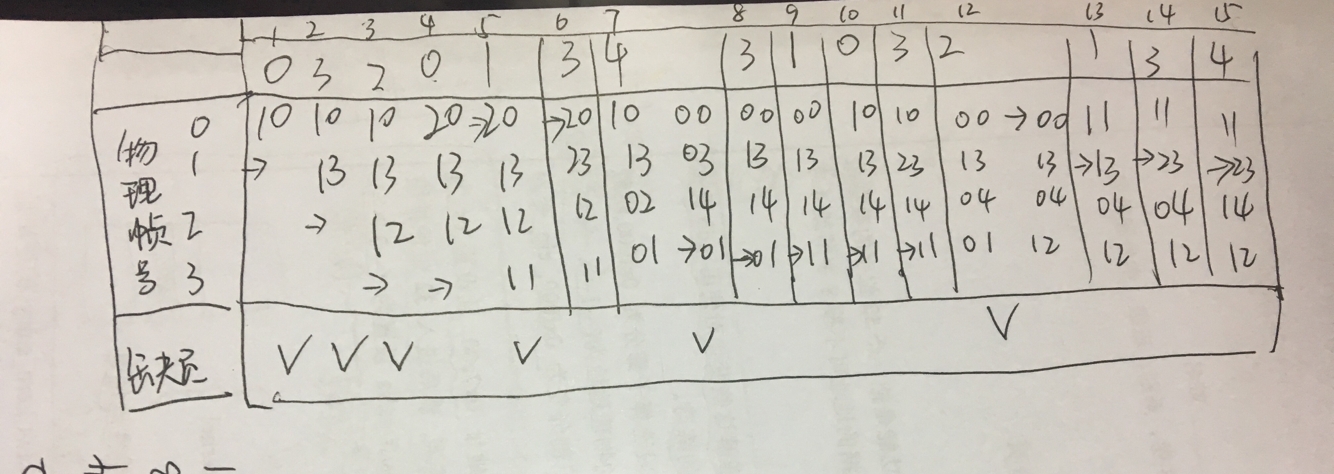 1 2 3 4 5 6 7 8 9 10 11 12 13 14 15
0 3 2 0 1 3 4 3 1 0 3 2 1 3 4
物理帧号
0 10 10 10 20 →20 →20 10 00 00 00 10 10 00 →00 11 11 11
1 → 13 13 13 13 23 13 03 13 13 13 23 13 13 →13 →23 →23
2 → 12 12 12 12 02 14 14 14 14 14 04 04 04 04 14
3 → → 11 11 01 →01 →01 →11 →11 →11 01 12 12 12 12
V V V V V V